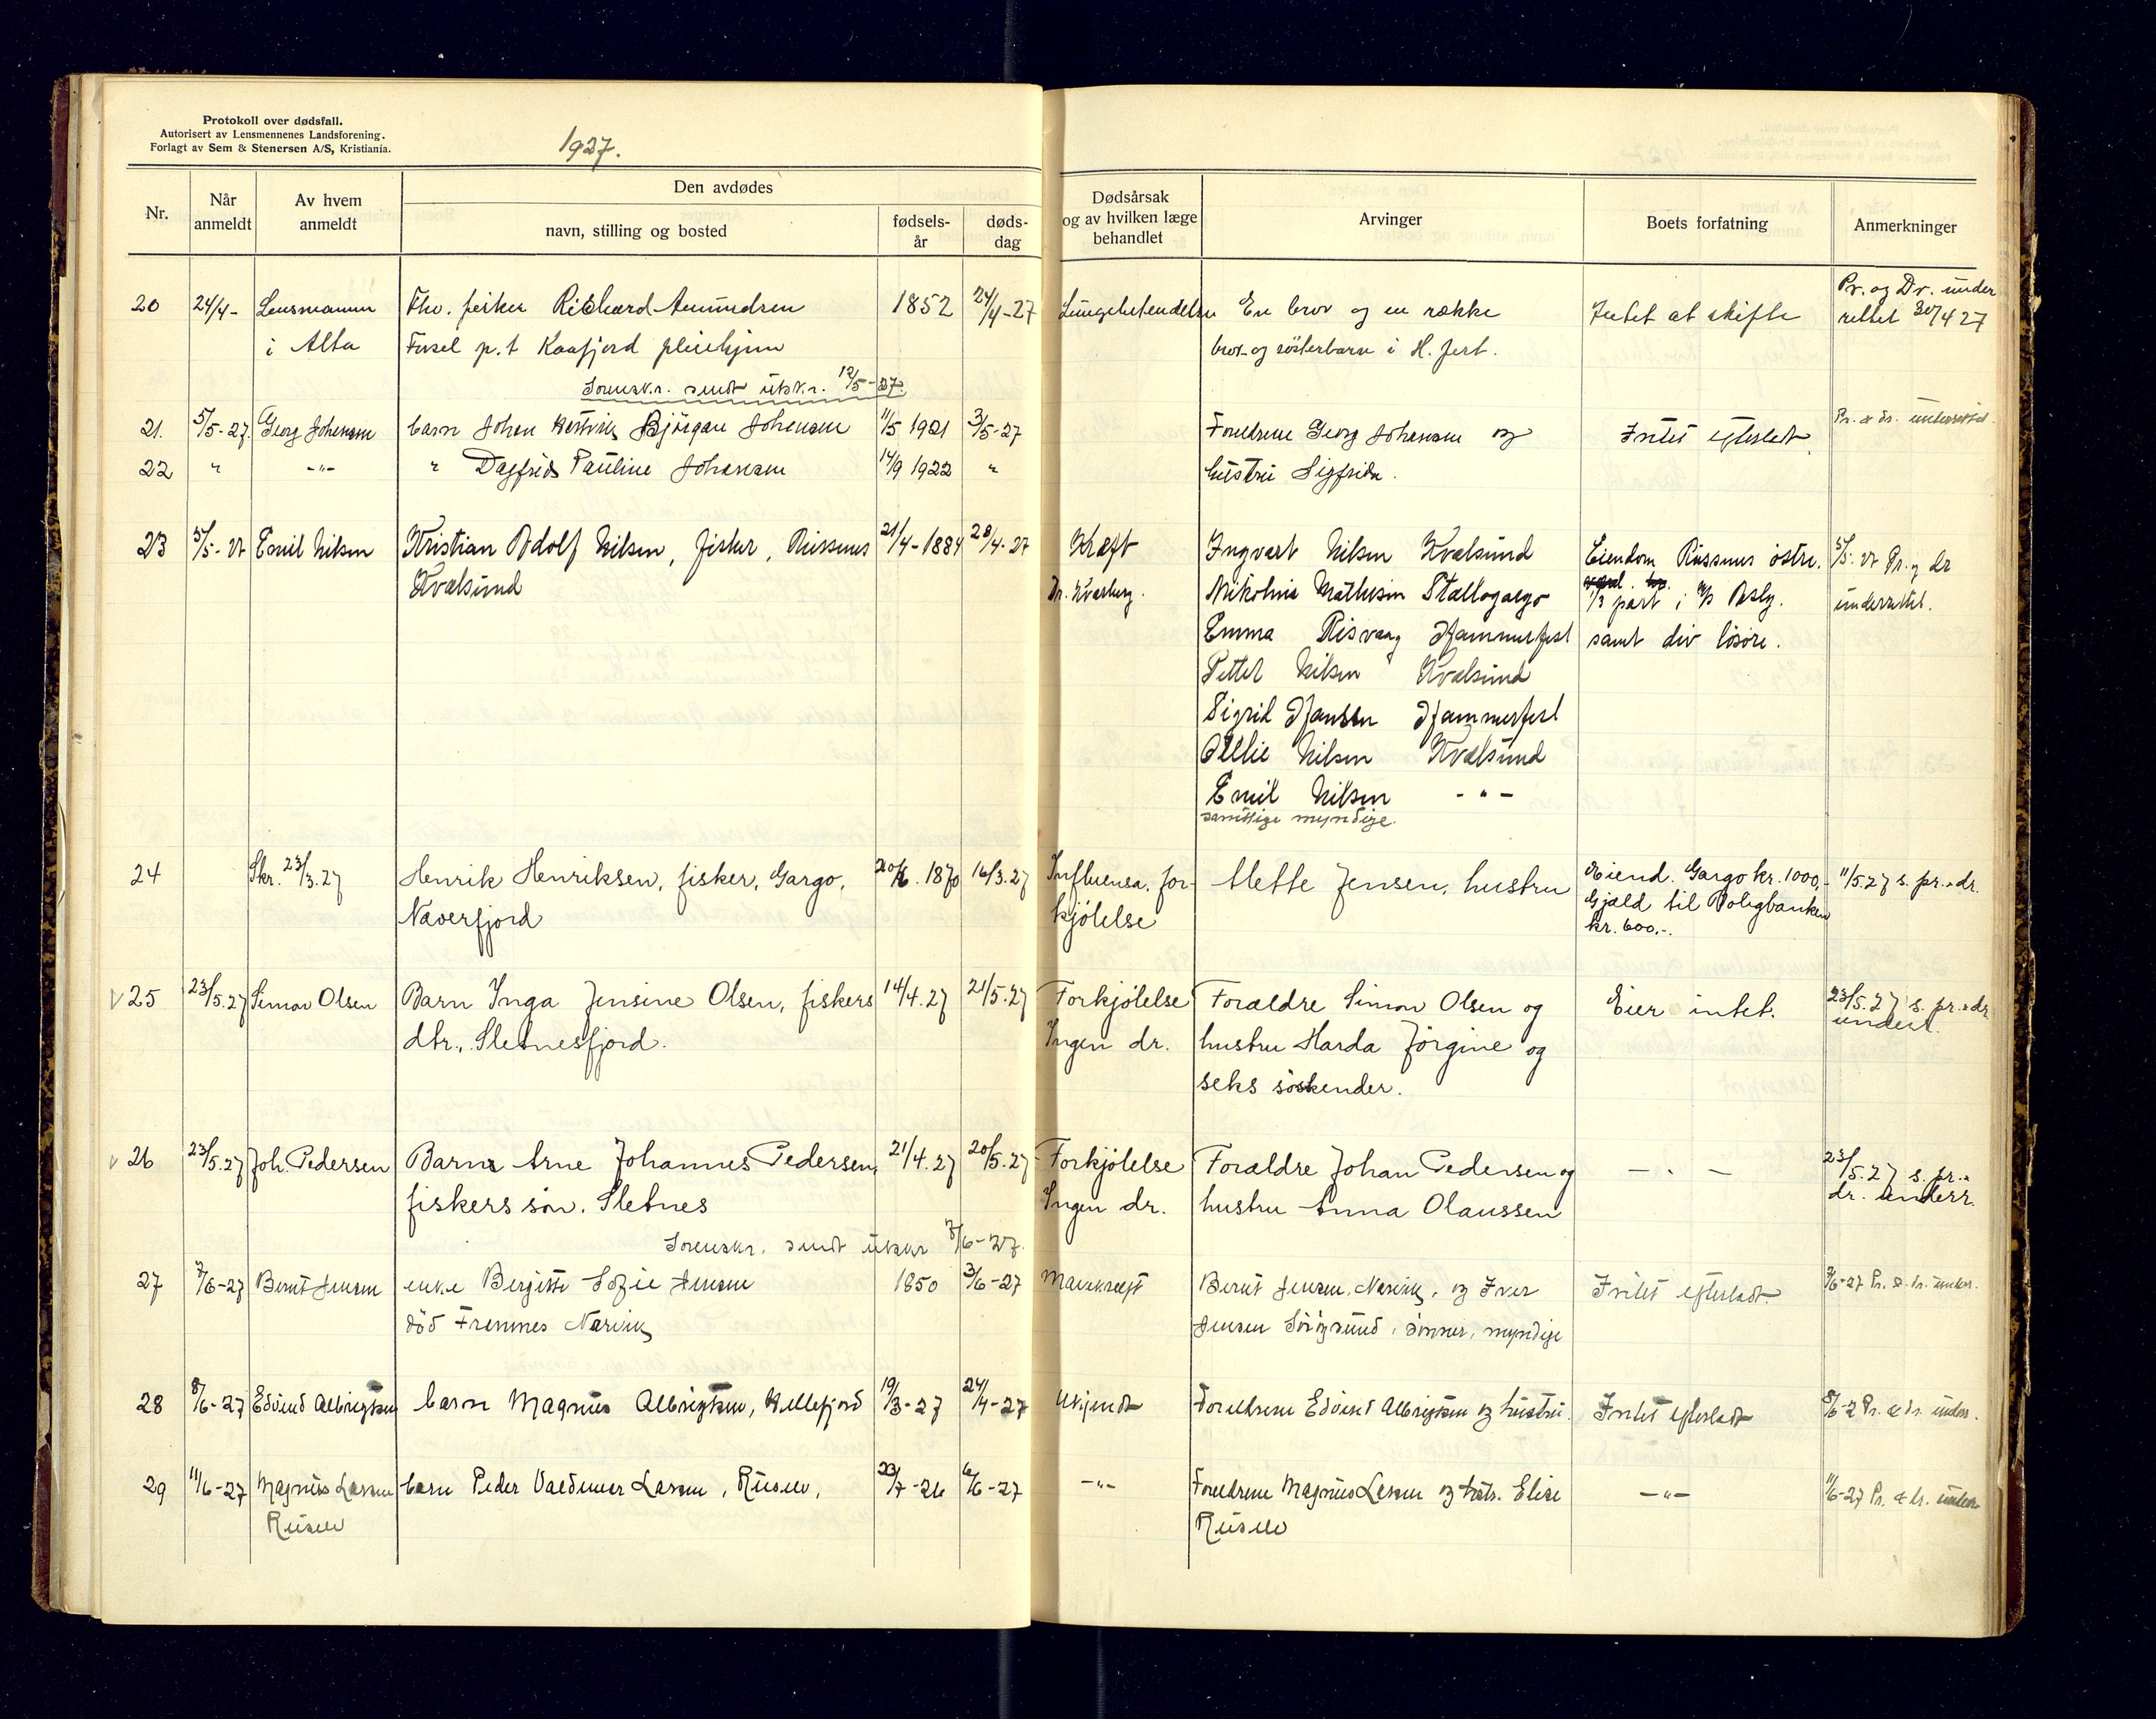 Protokoll over dødsfall.
Autorisert av Lensmennenes Landsforening.
Forlagt av Sem & Stenersen A/S, Kristiania.
1927.
Nr.
Når anmeldt
Av hvem anmeldt
Den avdødes
navn, stilling og bosted
fødsels-år
døds-dag
Dødsårsak og av hvilken læge behandlet
Arvinger
Boets forfatning
Anmerkninger
20 24/4- Lensmannen Fhv. fisker Richard Amundsen 1852 24/4-27 Lungebetendelse En bror og en række Intet at skifte Pr. og Dr. under
i Alta p.t Kaafjord pleiehjem bror- og søsterbarn i H.fest. rettet 30/4 27
Sorenskr. sendt utskr. 12/5-27.
21. 5/5-27. Georg Johansen barn Johan Bjørgan Johansen 11/5 1921 3/5-27 Foreldrene Georg Johansen og Intet efterladt. Pr. & dr. underrettet.
22 " -"- " Dagfrid Pauline Johansen 14/9 1922 " hustru Sigfrida.
23 5/5-27 Emil Nilsen Kristian Adolf Nilsen, fisker, Russenes 21/4-1884 28/4-27 Kræft Ingvart Nilsen Kvalsund Eiendom Russenes østre. 5/5. 27 Pr. og dr
Kvalsund Dr. Kvarberg. Nikoline Mathisen Stallogargo 1/3 part i m/s underrettet.
Emma Risvaag Hammerfest samt div løsøre.
Petter Nilsen Kvalsund
Sigrid Hansen Hammerfest
Nilsen Kvalsund
Emil Nilsen - " -
samtlige myndige.
24 Skr. 23/3.27 Henrik Henriksen, fisker, Gargo, 20/6. 1870 16/3.27 Influensa, for- Mette Jensen, hustru Eiend. Gargo kr. 1000,- 11/5.27 s. pr. & dr.
Naverfjord kjølelse Gjæld til Boligbanken
kr. 600,-.
25 23/5.27 Simon Olsen Barn Inga Jensine Olsen, fiskers 14/4.27 21/5.27 Forkjølelse Forældre Simon Olsen og Eier intet. 23/5.27 s. pr. & dr
dtr., Sletnesfjord. Ingen dr. hustru Harda Jørgine og underr.
seks søskender.
26 23/5.27 Joh. Pedersen Barn Arne Johannes Pedersen, 21/4.27 20/5.27 Forkjølelse Forældre Johan Pedersen og — . — 23/5.27 s. pr. &
fiskers søn. Sletnes Ingen dr. hustru Anna Olaussen dr. underr.
Sorenskr. sendt utskr 7/6-27.
27 7/6-27 Bernt Jensen enke Bergitte Sofie Jensen 1850 3/6-27 Mavekræft Bernt Jensen, Narvik, og Iver Intet efterladt. 7/6-27 Pr. & dr. under.
død Fremnes Narvik Jensen Sørøysund, sønner, myndige
28 8/6-27 Edvind Albrigtsen barn Magnus Albrigtsen, Hellefjord 19/3-27 24/4-27 Ukjendt Foreldrene Edvind Albrigtsen og hustru. Intet efterladt 8/6-2 Pr. & dr. under.
29 11/6-27 Magnus Larsen barn Peder Valdemar Larsen, Ruselv, 23/7-26 6/6-27 -"- Foreldrene Magnus Larsen og hstr. Elise -"- 11/6-27 Pr. & dr. under.
Ruselv Ruselv